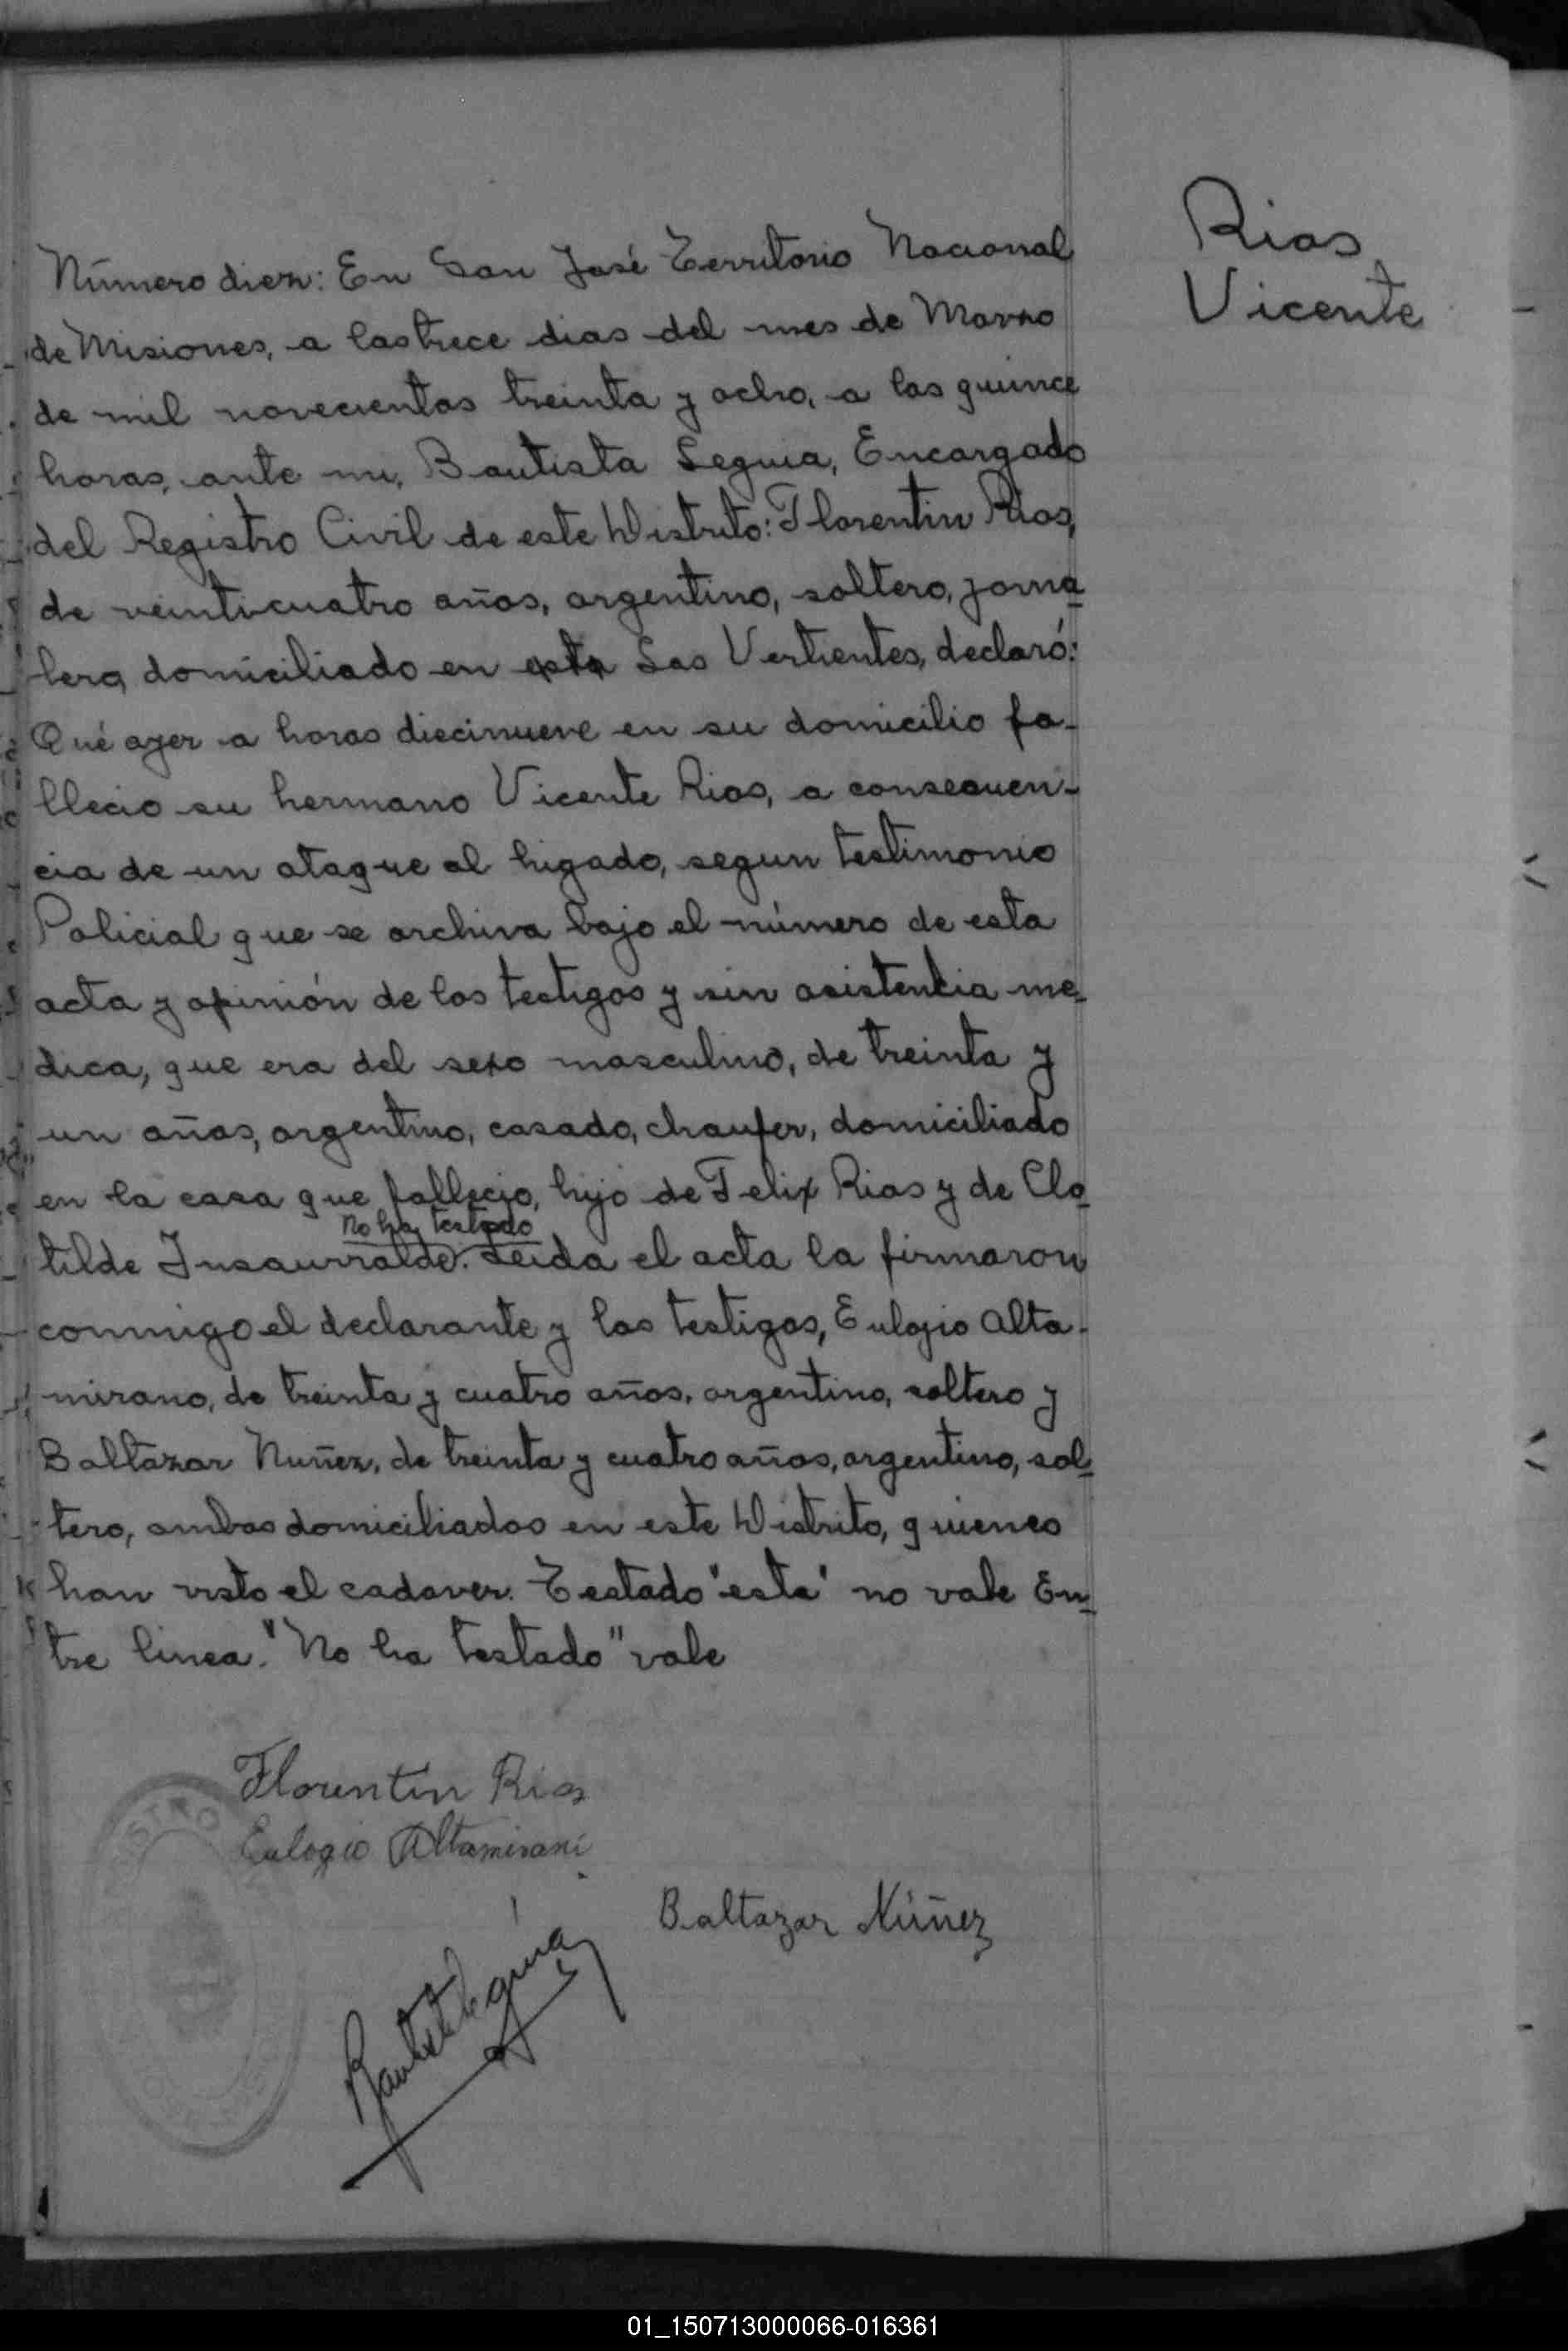 Rios
Vicente
Número diez: En San José Territorio Nacional
de Misiones, a los trece dias del mes de Marzo
de mil novecientos treinta y ocho, a las quince
horas, ante mi, Bautista Seguia, Encargado
del Registro Civil de este Distrito: Florentin Rios,
de veinticuatro años, argentino, soltero, jorna
lero, domiciliado en esta Las Vertientes, declaró:
Qué ayer a horas diecinueve en su domicilio fa-
llecio su hermano Vicente Rios, a consecuen-
cia de un ataque al higado, segun testimonio
Policial que se archiva bajo el número de esta
acta y opinión de los testigos y sin asistencia me-
dica, que era del sexo masculino, de treinta y
un años, argentino, casado, chaufer, domiciliado
en la casa que fallecio, hijo de Felix Rios y de Clo
no ha testado
tilde Insaurralde. Leida el acta la firmaron
conmigo el declarante y los testigos, Eulogio Alta-
mirano, de treinta y cuatro años, argentino, soltero y
Baltazar Nuñez, de treinta y cuatro años, argentino, sol-
tero, ambos domiciliados en este Distrito, quienes
han visto el cadaver. Testado "esta" no vale En-
tre linea. "No ha testado" vale
Florentin Rios
Eulogio Altamirani
Baltazar Núñez
01_150713000066-016361